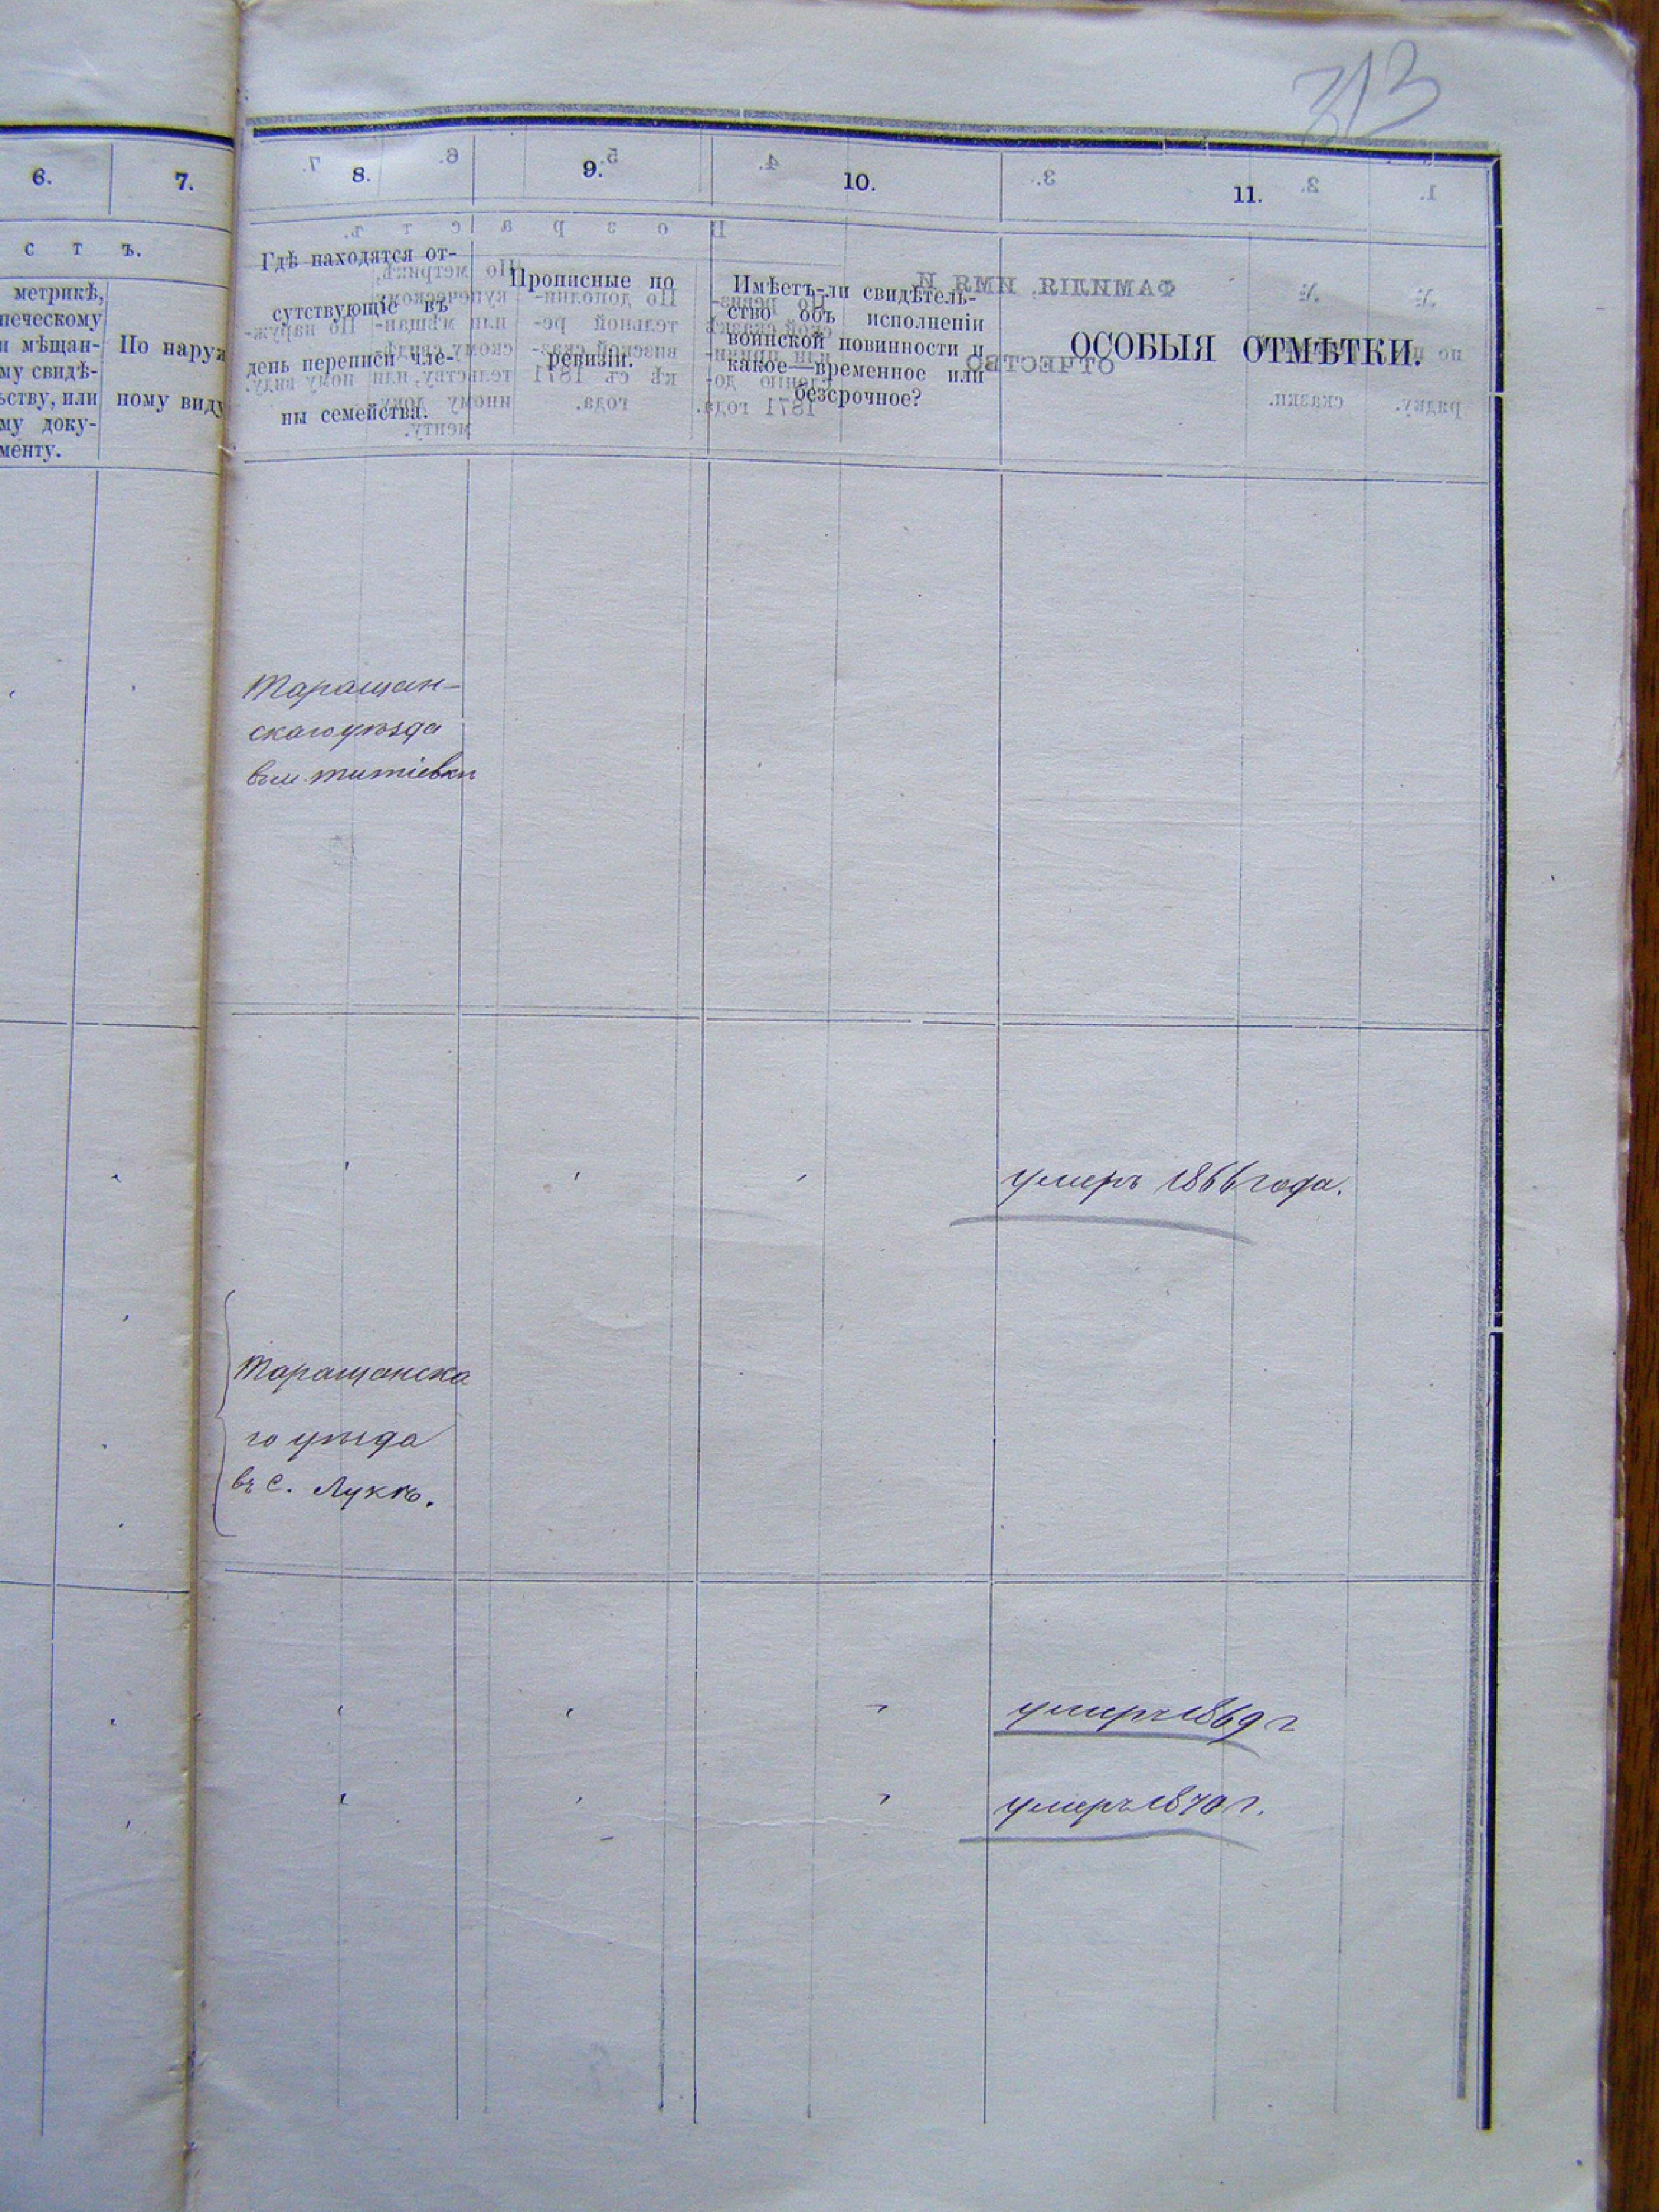 313
6.
7.
8.
9.
10.
11.
с т ъ.
метрикѣ,
печескому
и мѣщан-
му свидѣ-
ьству, или
му доку-
менту.
По наруж
ному виду
Гдѣ находятся от-
сутствующіе въ
день переписи чле-
ны семейства.
Прописные по
ревизіи.
Имѣетъ-ли свидѣтель-
ство объ исполненіи
воинской повинности и
какое—временное или
безсрочное?
ОСОБЫЯ ОТМѢТКИ.
Таращан-
скаго уѣзда
въ м. Титіевкѣ
умеръ 1866 года.
Таращанска
го уѣзда
въ с. Лукѣ.
умеръ 1869 г
умеръ 1870 г.